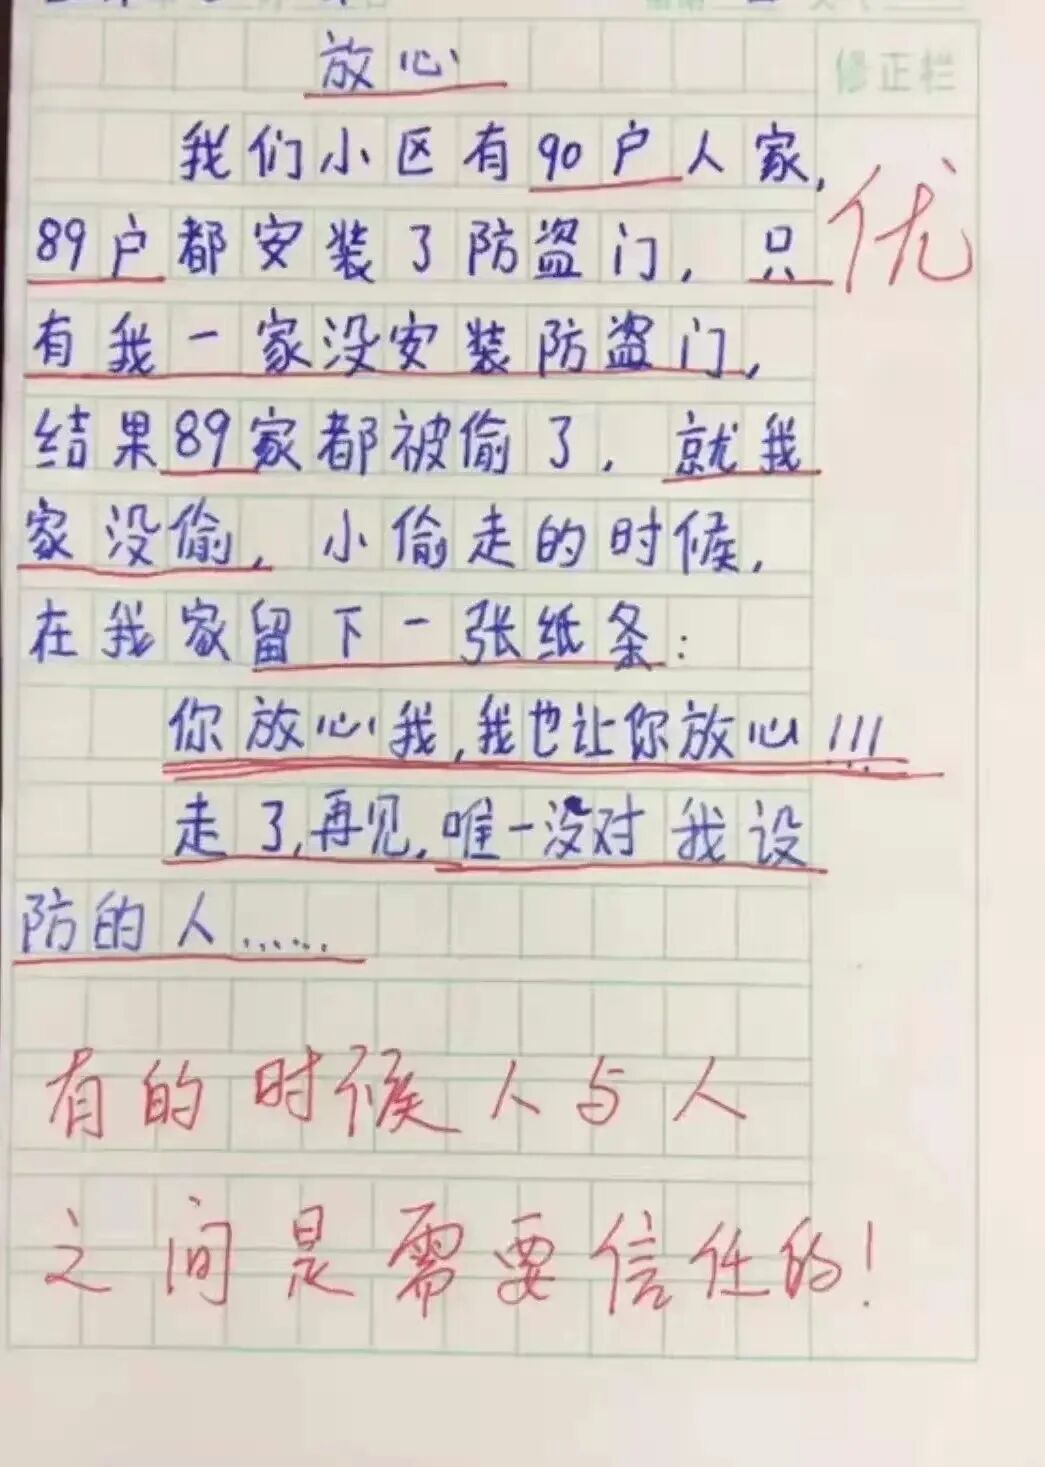 放心
修正栏
我们小区有90户人家,
优
89户都安装了防盗门,只
有我一家没安装防盗门,
结果89家都被偷了,就我
家没偷,小偷走的时候,
在我家留下一张纸条:
你放心我,我也让你放心!!!
走了,再见,唯一没对我设
防的人......
有的时候人与人
之间是需要信任的!